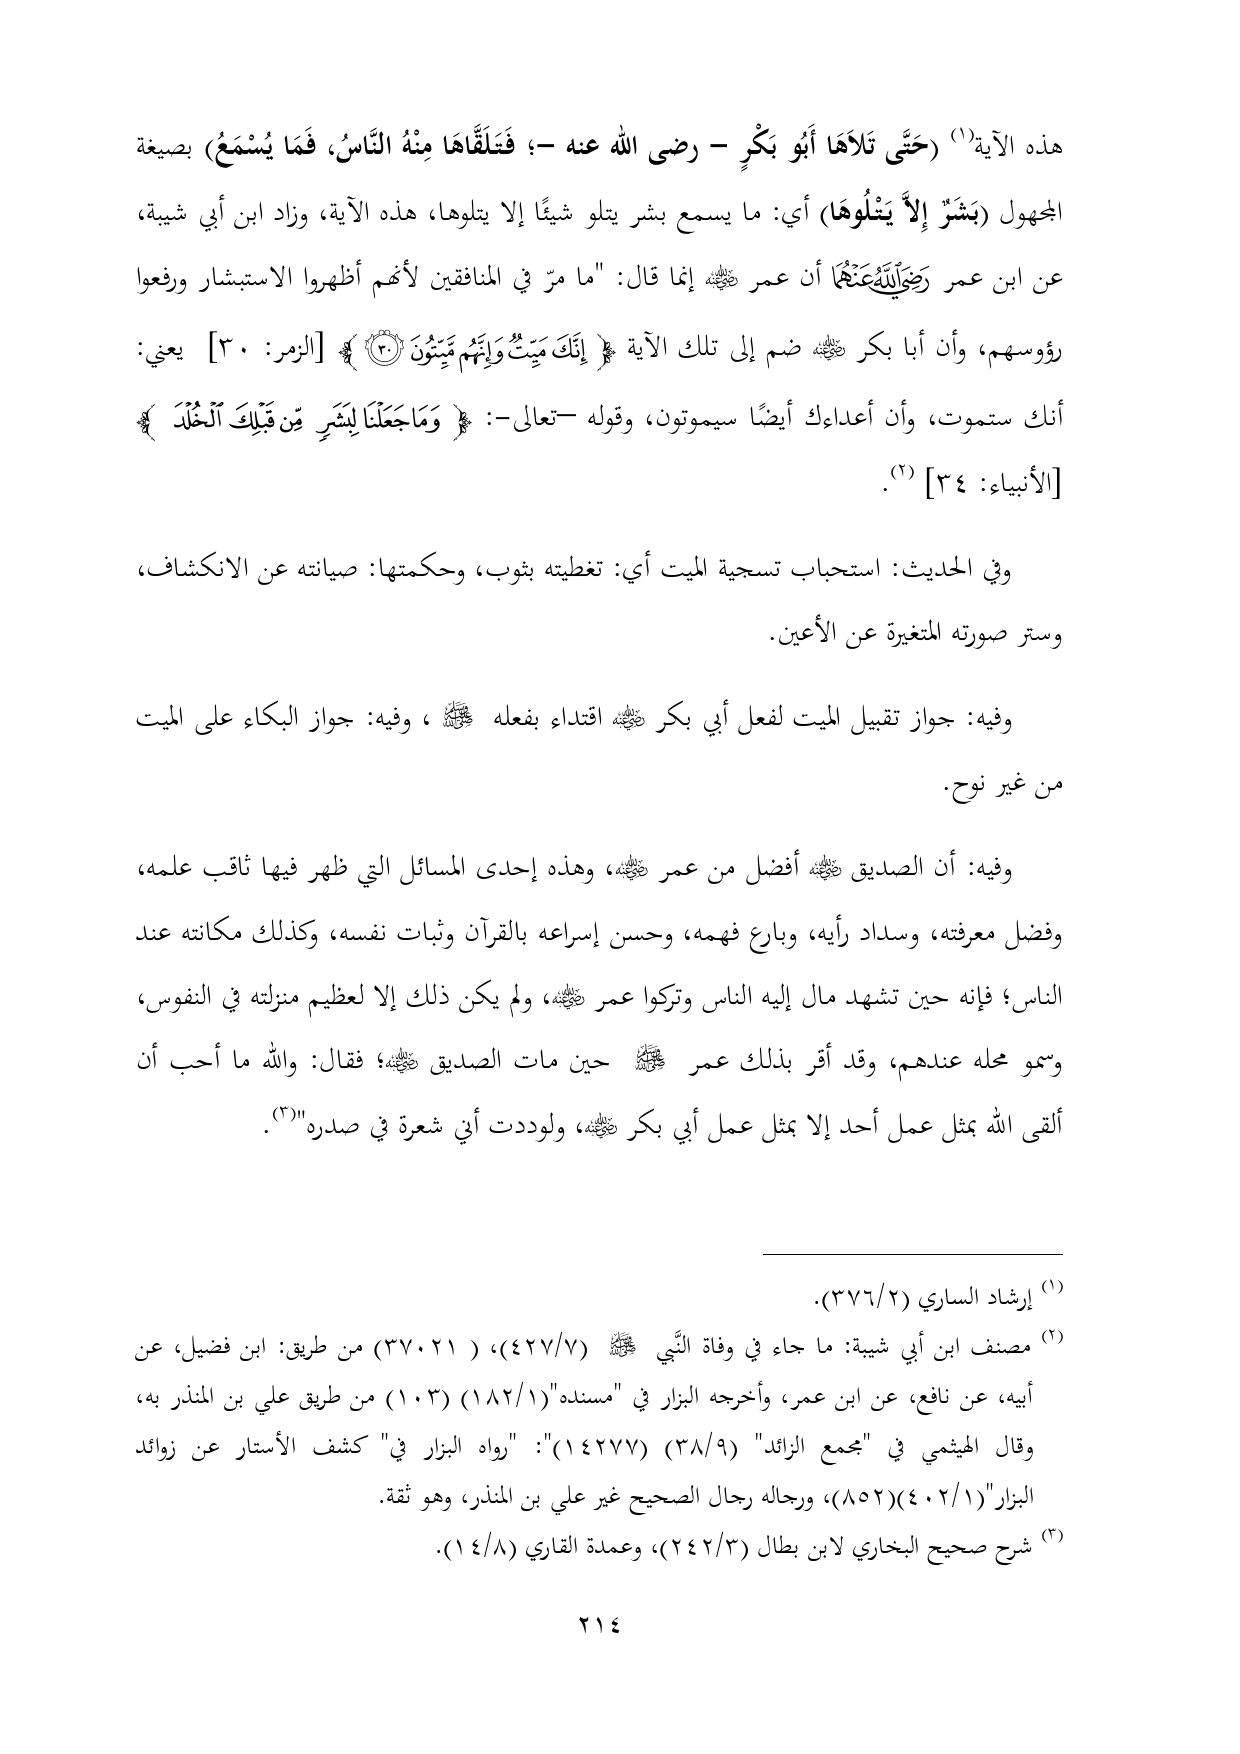 هذه الآية(١) (حَتَّى تَلاَهَا أَبُو بَكْرٍ – رضى الله عنه –؛ فَتَلَقَّاهَا مِنْهُ النَّاسُ، فَمَا يُسْمَعُ) بصيغة
المجهول (بَشَرٌ إِلاَّ يَتْلُوهَا) أي: ما يسمع بشر يتلو شيئًا إلا يتلوها، هذه الآية، وزاد ابن أبي شيبة،
عن ابن عمر رَضِيَ ٱللَّهُ عَنْهُمَا أن عمر رضي الله عنه إنما قال: "ما مرّ في المنافقين لأنهم أظهروا الاستبشار ورفعوا
رؤوسهم، وأن أبا بكر رضي الله عنه ضم إلى تلك الآية ﴿ إِنَّكَ مَيِّتٌ وَإِنَّهُم مَّيِّتُونَ ٣٠ ﴾ [الزمر: ٣٠] يعني:
أنك ستموت، وأن أعداءك أيضًا سيموتون، وقوله –تعالى–: ﴿ وَمَا جَعَلْنَا لِبَشَرٍ مِّن قَبْلِكَ ٱلْخُلْدَ ﴾
[الأنبياء: ٣٤] (٢).
وفي الحديث: استحباب تسجية الميت أي: تغطيته بثوب، وحكمتها: صيانته عن الانكشاف،
وستر صورته المتغيرة عن الأعين.
وفيه: جواز تقبيل الميت لفعل أبي بكر رضي الله عنه اقتداء بفعله ﷺ ، وفيه: جواز البكاء على الميت
من غير نوح.
وفيه: أن الصديق رضي الله عنه أفضل من عمر رضي الله عنه، وهذه إحدى المسائل التي ظهر فيها ثاقب علمه،
وفضل معرفته، وسداد رأيه، وبارع فهمه، وحسن إسراعه بالقرآن وثبات نفسه، وكذلك مكانته عند
الناس؛ فإنه حين تشهد مال إليه الناس وتركوا عمر رضي الله عنه، ولم يكن ذلك إلا لعظيم منزلته في النفوس،
وسمو محله عندهم، وقد أقر بذلك عمر ﷺ حين مات الصديق رضي الله عنه؛ فقال: والله ما أحب أن
ألقى الله بمثل عمل أحد إلا بمثل عمل أبي بكر رضي الله عنه، ولوددت أني شعرة في صدره"(٣).
(١) إرشاد الساري (٣٧٦/٢).
(٢) مصنف ابن أبي شيبة: ما جاء في وفاة النَّبي ﷺ (٤٢٧/٧)، ( ٣٧٠٢١) من طريق: ابن فضيل، عن
أبيه، عن نافع، عن ابن عمر، وأخرجه البزار في "مسنده"(١٨٢/١) (١٠٣) من طريق علي بن المنذر به،
وقال الهيثمي في "مجمع الزائد" (٣٨/٩) (١٤٢٧٧)": "رواه البزار في" كشف الأستار عن زوائد
البزار"(٤٠٢/١)(٨٥٢)، ورجاله رجال الصحيح غير علي بن المنذر، وهو ثقة.
(٣) شرح صحيح البخاري لابن بطال (٢٤٢/٣)، وعمدة القاري (١٤/٨).
٢١٤